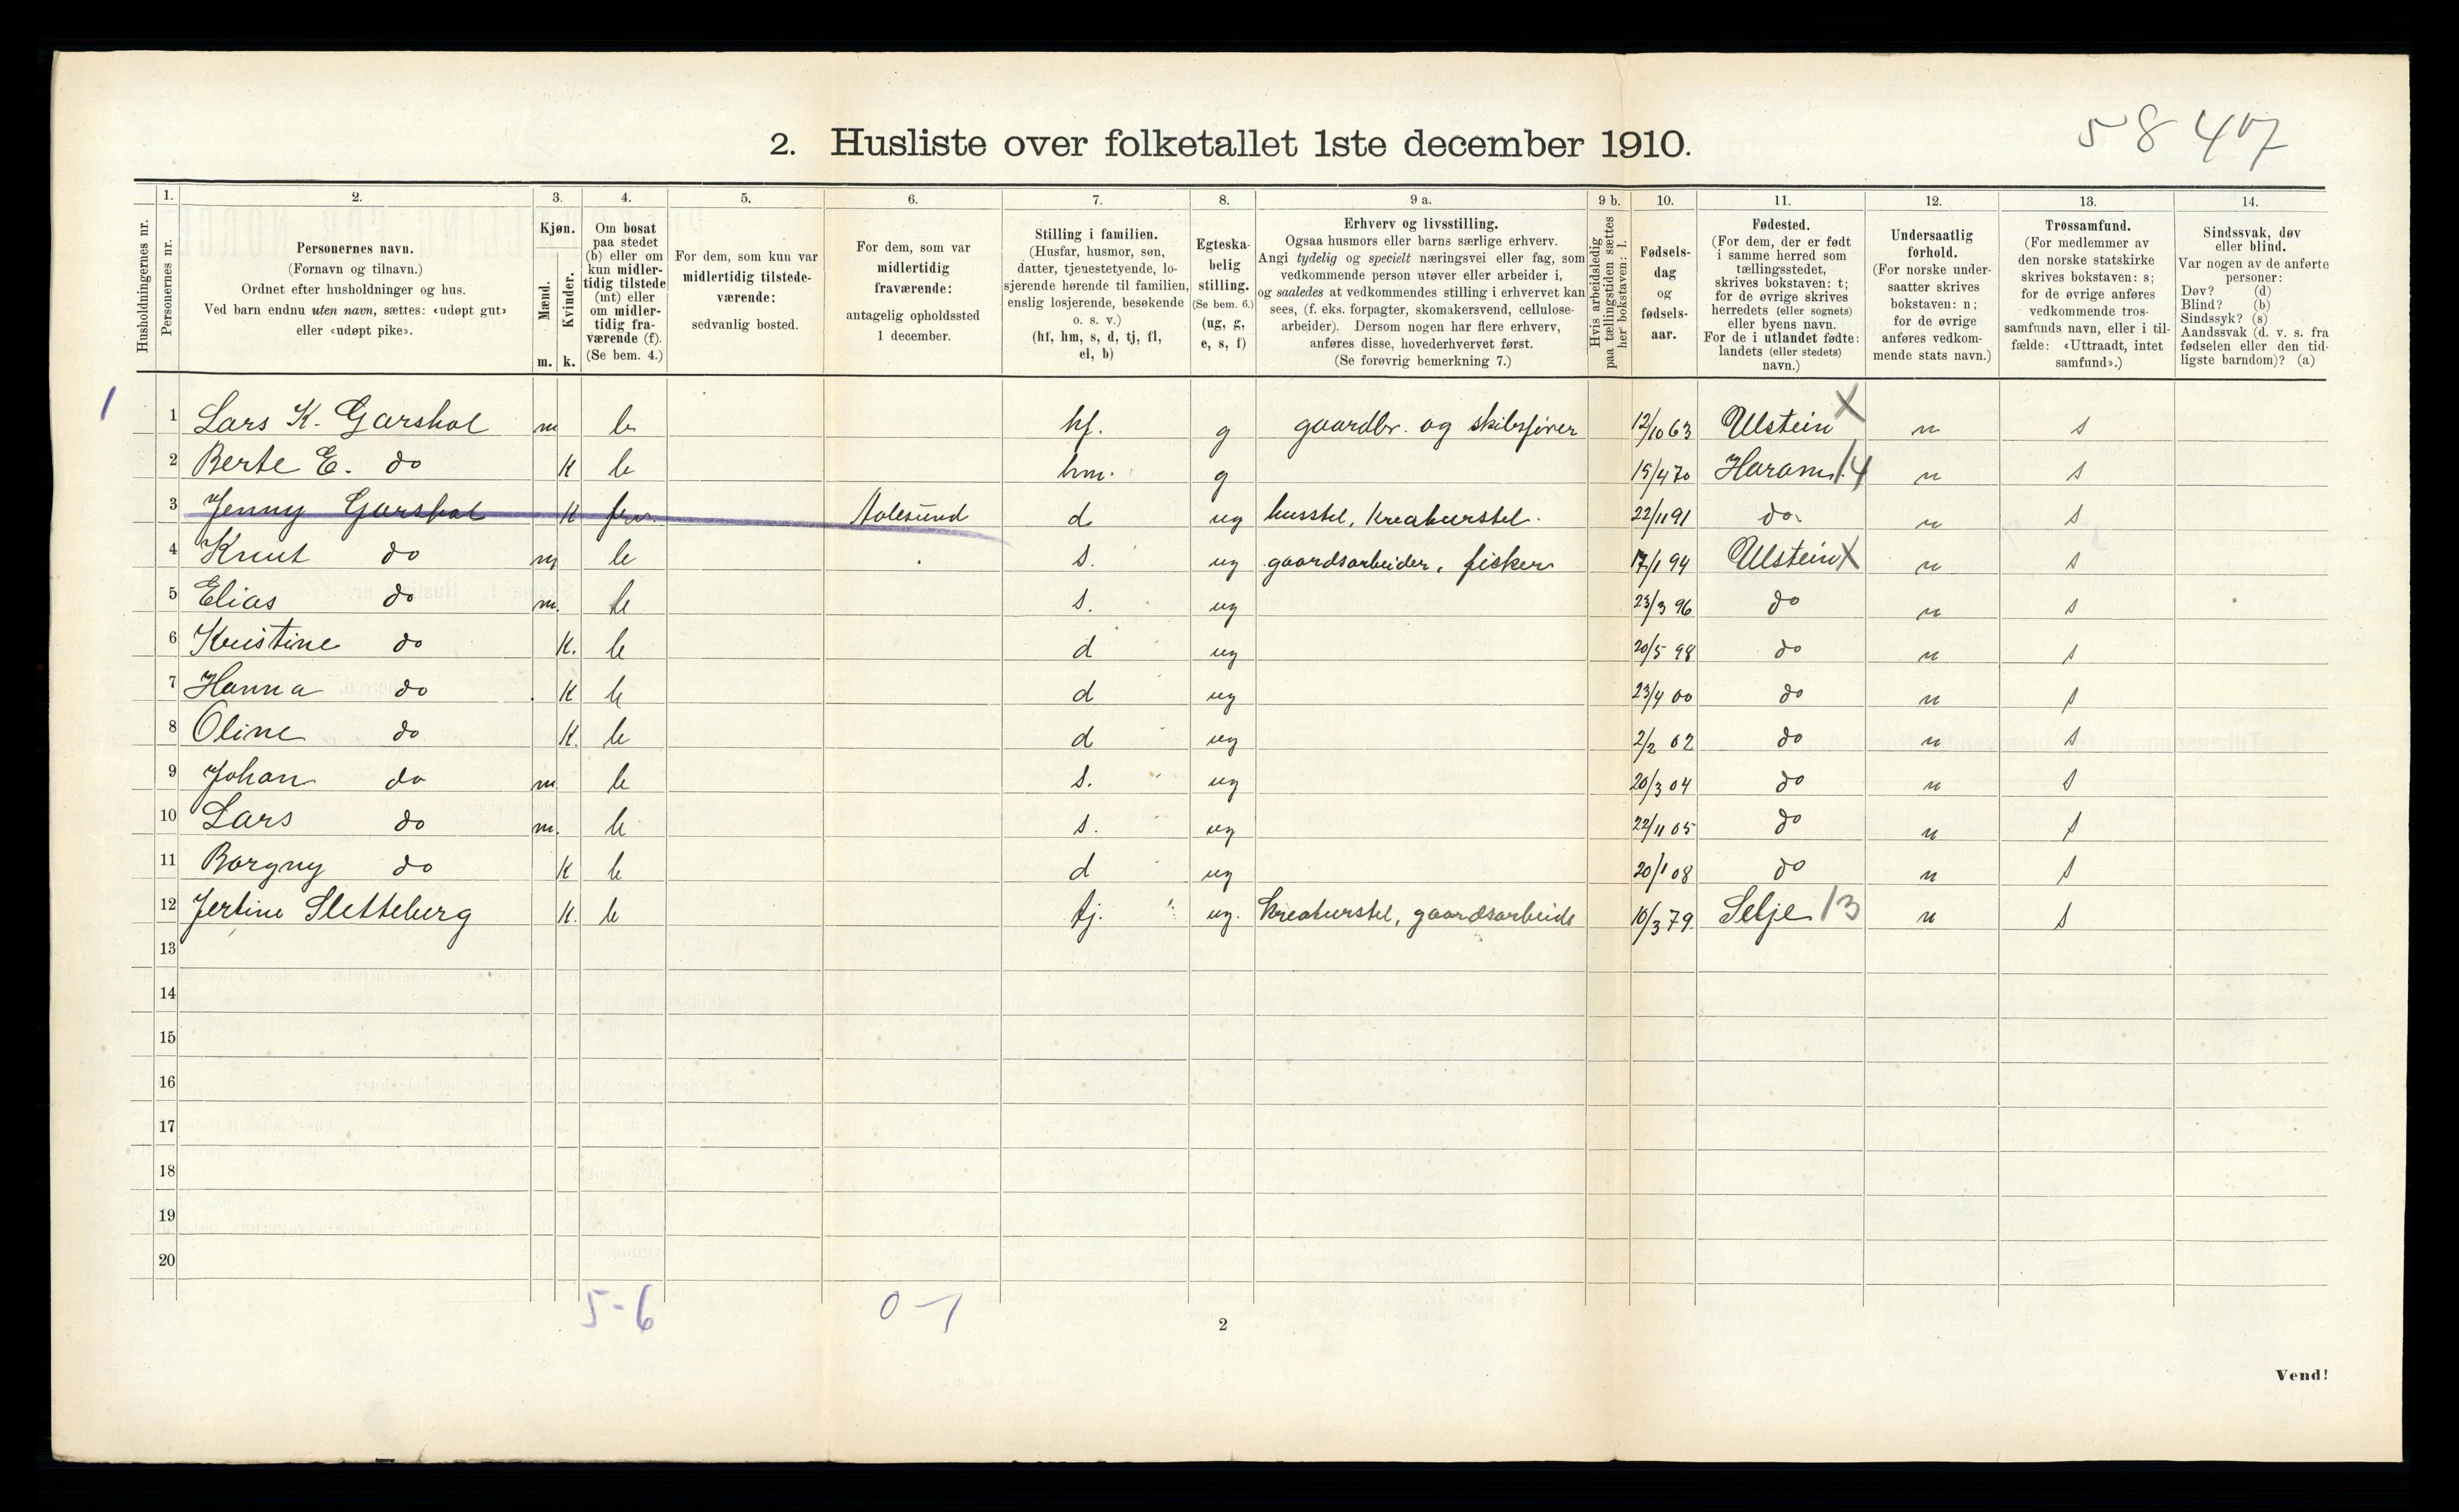 58 407
2. Husliste over folketallet 1ste december 1910.
Husholdningernes nr.
1. Personernes nr.
2. Personernes navn. (Fornavn og tilnavn.) Ordnet efter husholdninger og hus. Ved barn endnu uten navn, sættes: «udøpt gut» eller «udøpt pike».
3. Kjøn. Mænd. m. Kvinder. k.
4. Om bosat paa stedet (b) eller om kun midlertidig tilstede (mt) eller om midlertidig fraværende (f). (Se bem. 4.)
5. For dem, som kun var midlertidig tilstedeværende: sedvanlig bosted.
6. For dem, som var midlertidig fraværende: antagelig opholdssted 1 december.
7. Stilling i familien. (Husfar, husmor, søn, datter, tjenestetyende, losjerende hørende til familien, enslig losjerende, besøkende o. s. v.) (hf, hm, s, d, tj, fl, el, b)
8. Egteskabelig stilling. (Se bem. 6.) (ug, g, e, s, f)
9 a. Erhverv og livsstilling. Ogsaa husmors eller barns særlige erhverv. Angi tydelig og specielt næringsvei eller fag, som vedkommende person utøver eller arbeider i, og saaledes at vedkommendes stilling i erhvervet kan sees, (f. eks. forpagter, skomakersvend, cellulosearbeider). Dersom nogen har flere erhverv, anføres disse, hovederhvervet først. (Se forøvrig bemerkning 7.)
9 b. Hvis arbeidsledig paa tællingstiden sættes her bokstaven: l.
10. Fødselsdag og fødselsaar.
11. Fødested. (For dem, der er født i samme herred som tællingsstedet, skrives bokstaven: t; for de øvrige skrives herredets (eller sognets) eller byens navn. For de i utlandet fødte: landets (eller stedets) navn.)
12. Undersaatlig forhold. (For norske undersaatter skrives bokstaven: n; for de øvrige anføres vedkommende stats navn.)
13. Trossamfund. (For medlemmer av den norske statskirke skrives bokstaven: s; for de øvrige anføres vedkommende trossamfunds navn, eller i tilfælde: «Uttraadt, intet samfund».)
14. Sindssvak, døv eller blind. Var nogen av de anførte personer: Døv? (d) Blind? (b) Sindssyk? (s) Aandssvak (d. v. s. fra fødselen eller den tidligste barndom)? (a)
1 1 Lars K. Garshol m b hf. g gaardbr. og skibsfører 12/10 63 Ulstein X n s
2 Berte E. do k b hm. g 15/4 70 Haram 14 n s
3 Jenny Garshol k Aalesund d ug husstel, kreaturstel. 22/11 91 do n s
4 Knut do m b s. ug gaardsarbeider, fisker 17/1 94 Ulstein X n s
5 Elias do m. b s. ug 23/3 96 do n s
6 Kristine do k. b d ug 20/5 98 do n s
7 Hanna do k b d ug 23/4 00 do n s
8 Oline do k. b d ug 2/2 02 do n s
9 Johan do m b s. ug 20/3 04 do n s
10 Lars do m. b s. ug 22/11 05 do n s
11 Borgny do k b d ug 20/1 08 do n s
12 Jertine Sletteberg k. b tj. ug. kreaturstel, gaardsarbeide 10/3 79. Selje 13 n s
13
14
15
16
17
18
19
20
5-6 0-1
2
Vend!